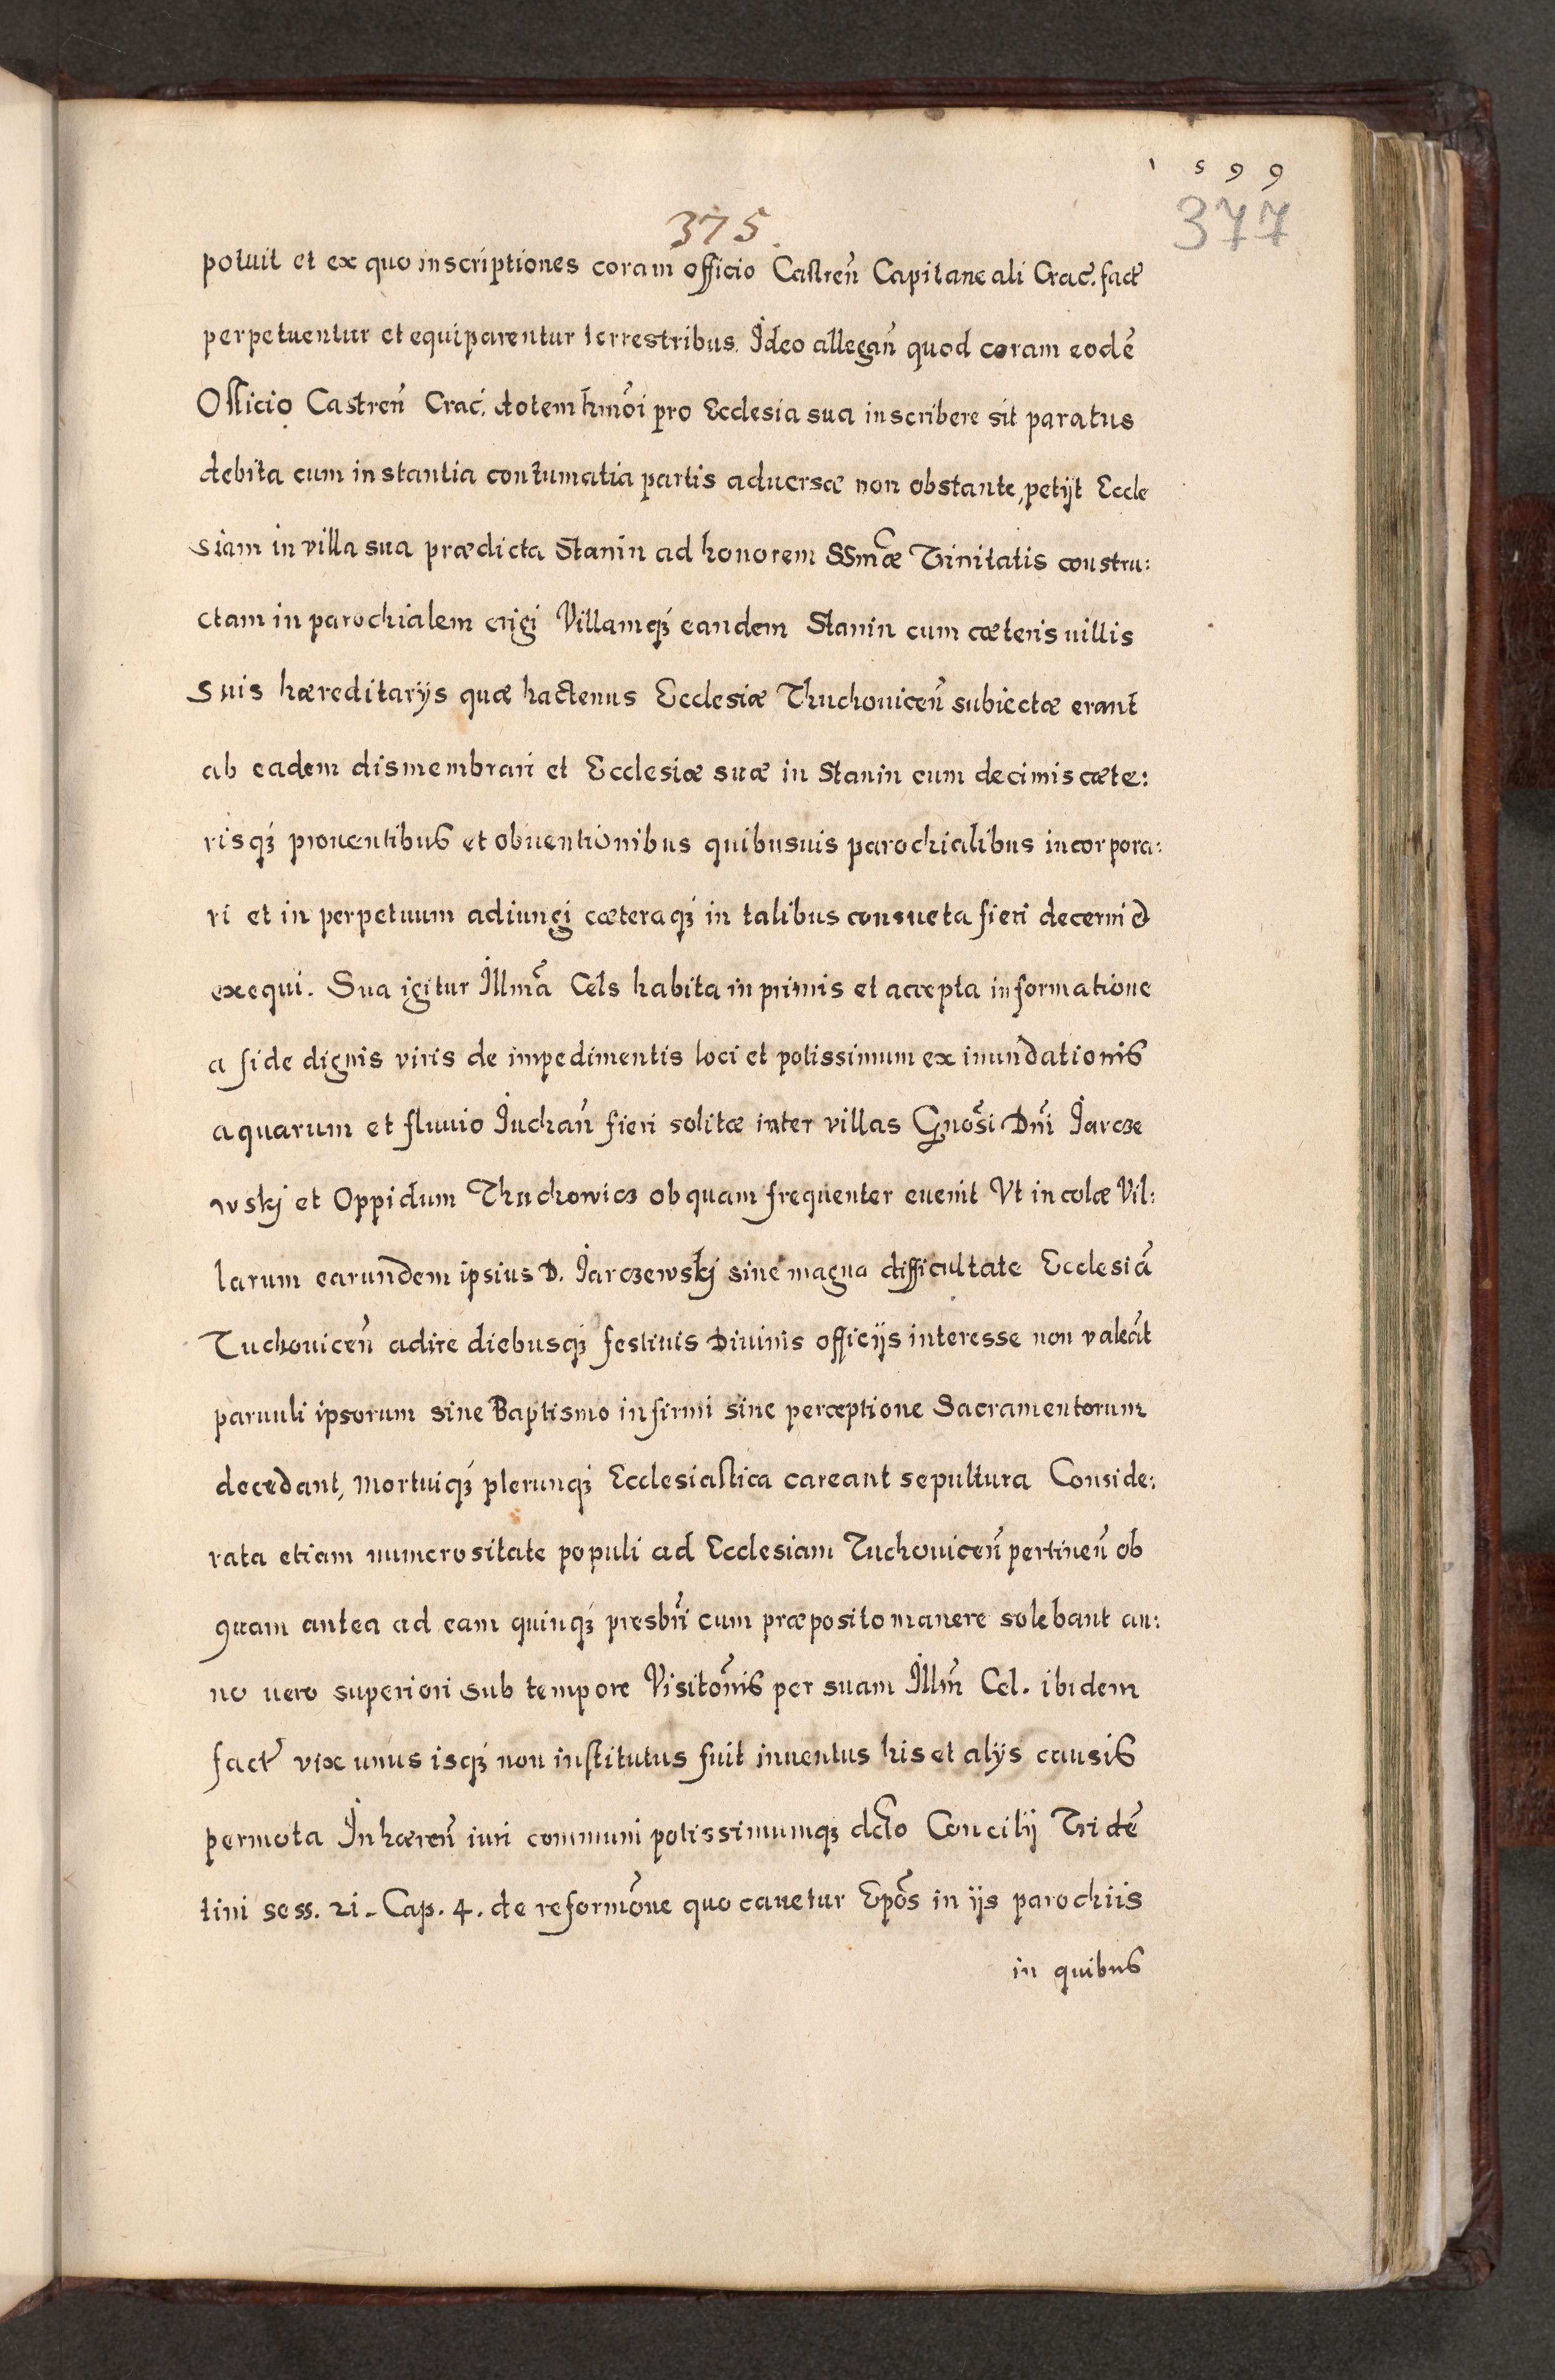 1 5 9 9
377
375.
potuit et ex quo inscriptiones coram officio Castren̄ Capitaneali Crac. fact̄
perpetuentur et equiparentur terrestribus. Ideo allegan̄ quod coram eodē
Officio Castren̄ Crac. dotem hmōi pro Ecclesia sua inscribere sit paratus
debita cum instantia contumatia partis aduersæ non obstante, petijt Eccle
siam in villa sua prædicta Stanin ad honorem SSmæ Trinitatis constru:
ctam in parochialem erigi Villamqꝫ eandem Stanin cum cæteris uillis
suis hæreditarijs quæ hactenus Ecclesiæ Thuchouicen̄ subiectæ erant
ab eadem dismembrari et Ecclesiæ suæ in Stanin cum decimis cæte:
risqꝫ prouentibus et obuentionibus quibusuis parochialibus incorpora:
ri et in perpetuum adiungi cæteraqꝫ in talibus consueta fieri decerni et
exequi. Sua igitur Illmā Cels habita in primis et accepta informatione
a fide dignis viris de impedimentis loci et potissimum ex inundationis
aquarum et fluuio Juchan̄ fieri solitæ inter villas Gnōsi Dn̄i Jarcze
wskj et Oppidum Thuchowicz ob quam frequenter euenit Vt incolæ Vil:
larum earundem ipsius D. Jarczewskj sine magna difficultate Ecclesiā
Tuchouicen̄ adire diebusqꝫ festiuis Diuinis officijs interesse non valeāt
paruuli ipsorum sine Baptismo infirmi sine perceptione Sacramentorum
decedant, mortuiqꝫ plerunqꝫ Ecclesiastica careant sepultura Conside:
rata etiam numerositate populi ad Ecclesiam Tuchouicen̄ pertinen̄ ob
quam antea ad eam quinqꝫ presbri̅ cum præposito manere solebant an:
no uero superiori sub tempore Visitōnis per suam Illm̄ Cel. ibidem
fact̄ vix unus isqꝫ non institutus fuit inuentus his et alijs causis
permota Inhæren̄ iuri communi potissimumqꝫ dcto Concilij Tridē
tini sess. 21. Cap. 4. de reformōne quo cauetur Epōs in ijs parochiis
in quibus